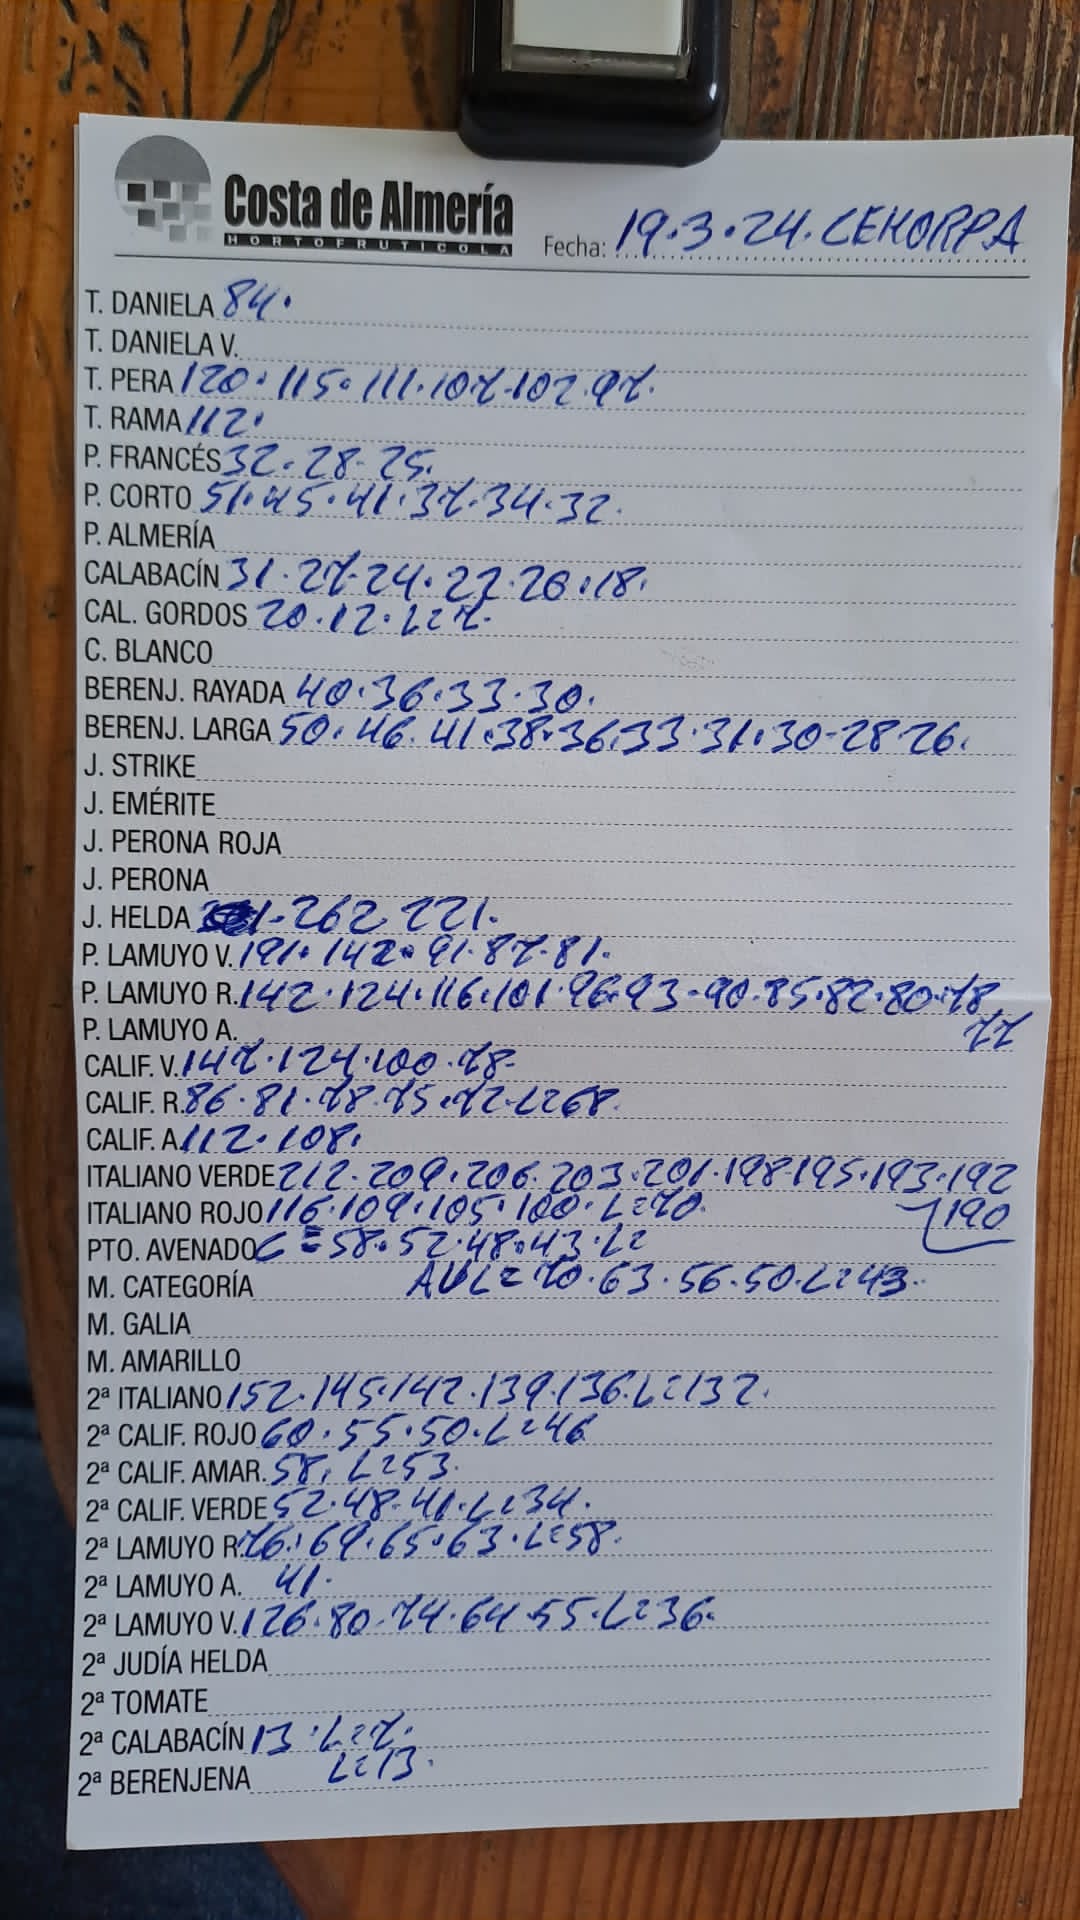 Costa de Almería
HORTOFRUTICOLA
Fecha: 19.3.24. CEHORPA
T. DANIELA 84.
T. DANIELA V.
T. PERA 120.115.111.107.102.97.
T. RAMA 112.
P. FRANCÉS 32.28.25.
P. CORTO 51.45.41.37.34.32.
P. ALMERÍA
CALABACÍN 31.27.24.22.20.18.
CAL. GORDOS 20.12.L=7.
C. BLANCO
BERENJ. RAYADA 40.36.33.30.
BERENJ. LARGA 50.46.41.38.36.33.31.30-28.26.
J. STRIKE
J. EMÉRITE
J. PERONA ROJA
J. PERONA
J. HELDA 262 221.
P. LAMUYO V. 191.142.91.87.81.
P. LAMUYO R. 142.124.116.101.96.93.90.85.82.80.78
77
P. LAMUYO A.
CALIF. V. 147.124.100.78.
CALIF. R. 86.81.78.75.72.L=68.
CALIF. A 112.108.
ITALIANO VERDE 212.209.206.203.201.198.195.193.192
190
ITALIANO ROJO 116.109.105.100.L=70.
PTO. AVENADO C=58.52.48.43.L=
AVL=70.63.56.50.L=43.
M. CATEGORÍA
M. GALIA
M. AMARILLO
2ª ITALIANO 152.145.142.139.136.L=132.
2ª CALIF. ROJO 60.55.50.L=46
2ª CALIF. AMAR. 58. L=53.
2ª CALIF. VERDE 52.48.41.L=34.
2ª LAMUYO R. 76.69.65.63.L=58.
2ª LAMUYO A. 41.
2ª LAMUYO V. 126.80.74.64.55.L=36.
2ª JUDÍA HELDA
2ª TOMATE
2ª CALABACÍN 13.L=7.
2ª BERENJENA L=13.